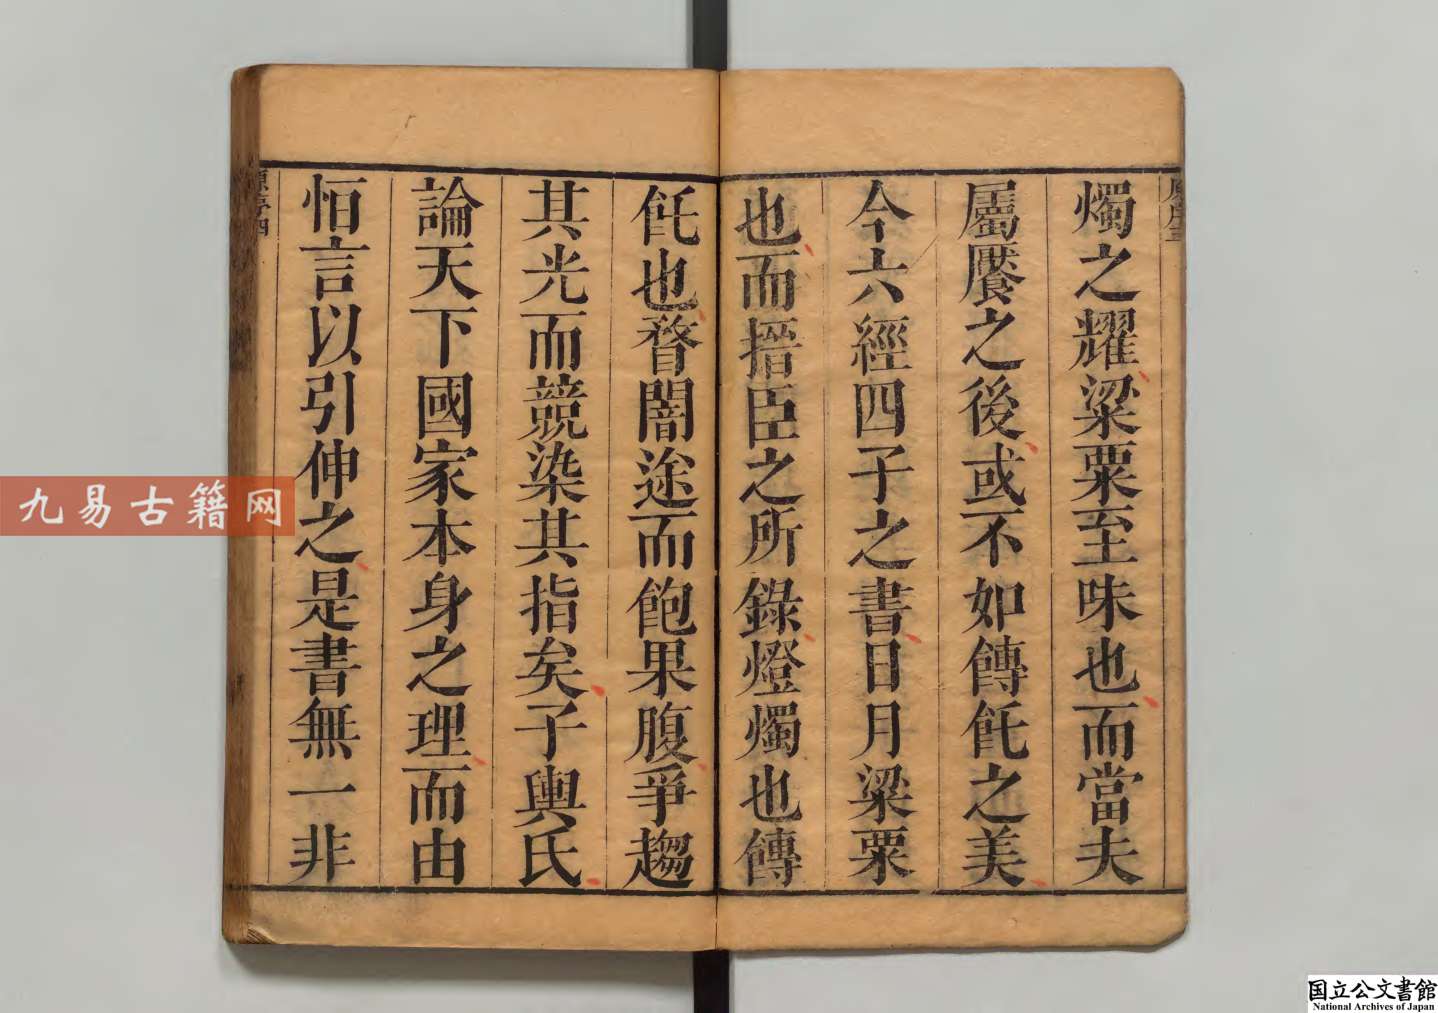 燭之耀粱粟至味也而當夫
屬饜之後或不如傳飥之美
今六經四子之書日月粱粟
也而搢臣之所錄燈燭也傳
飥也瞀闇途而飽果腹爭趨
其光而競染其指矣子輿氏
論天下國家本身之理而由
恒言以引伸之是書無一非
序四
九易古籍网
国立公文書館
National Archives of Japan